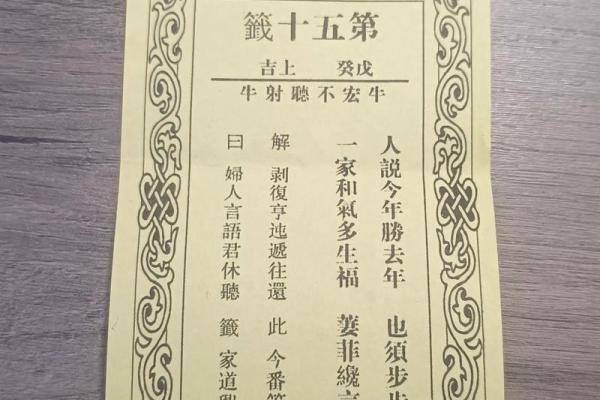 第五十籤
戊癸 上吉
牛宏不聽射牛
人説今年勝去年 也須步
一家和氣多生福 萋菲纔
解 剥復亨迍遞往還 此 今番
曰 婦人言語君休聽 籤 家道